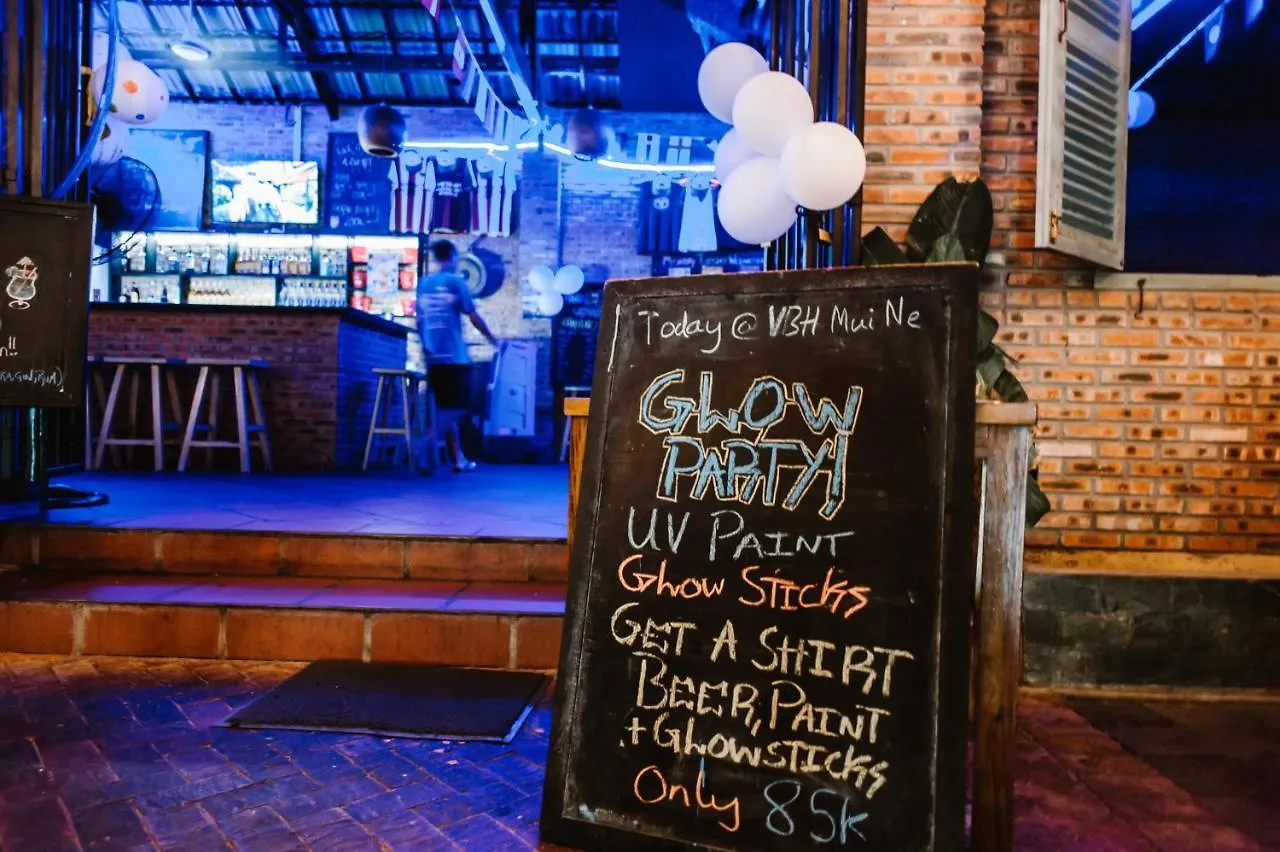 Today @ VBH Mui Ne
GLOW
PARTY!
UV PAINT
Glow Sticks
GET A SHIRT
BEER, PAINT
+ GLOWSTICKS
Only 85k